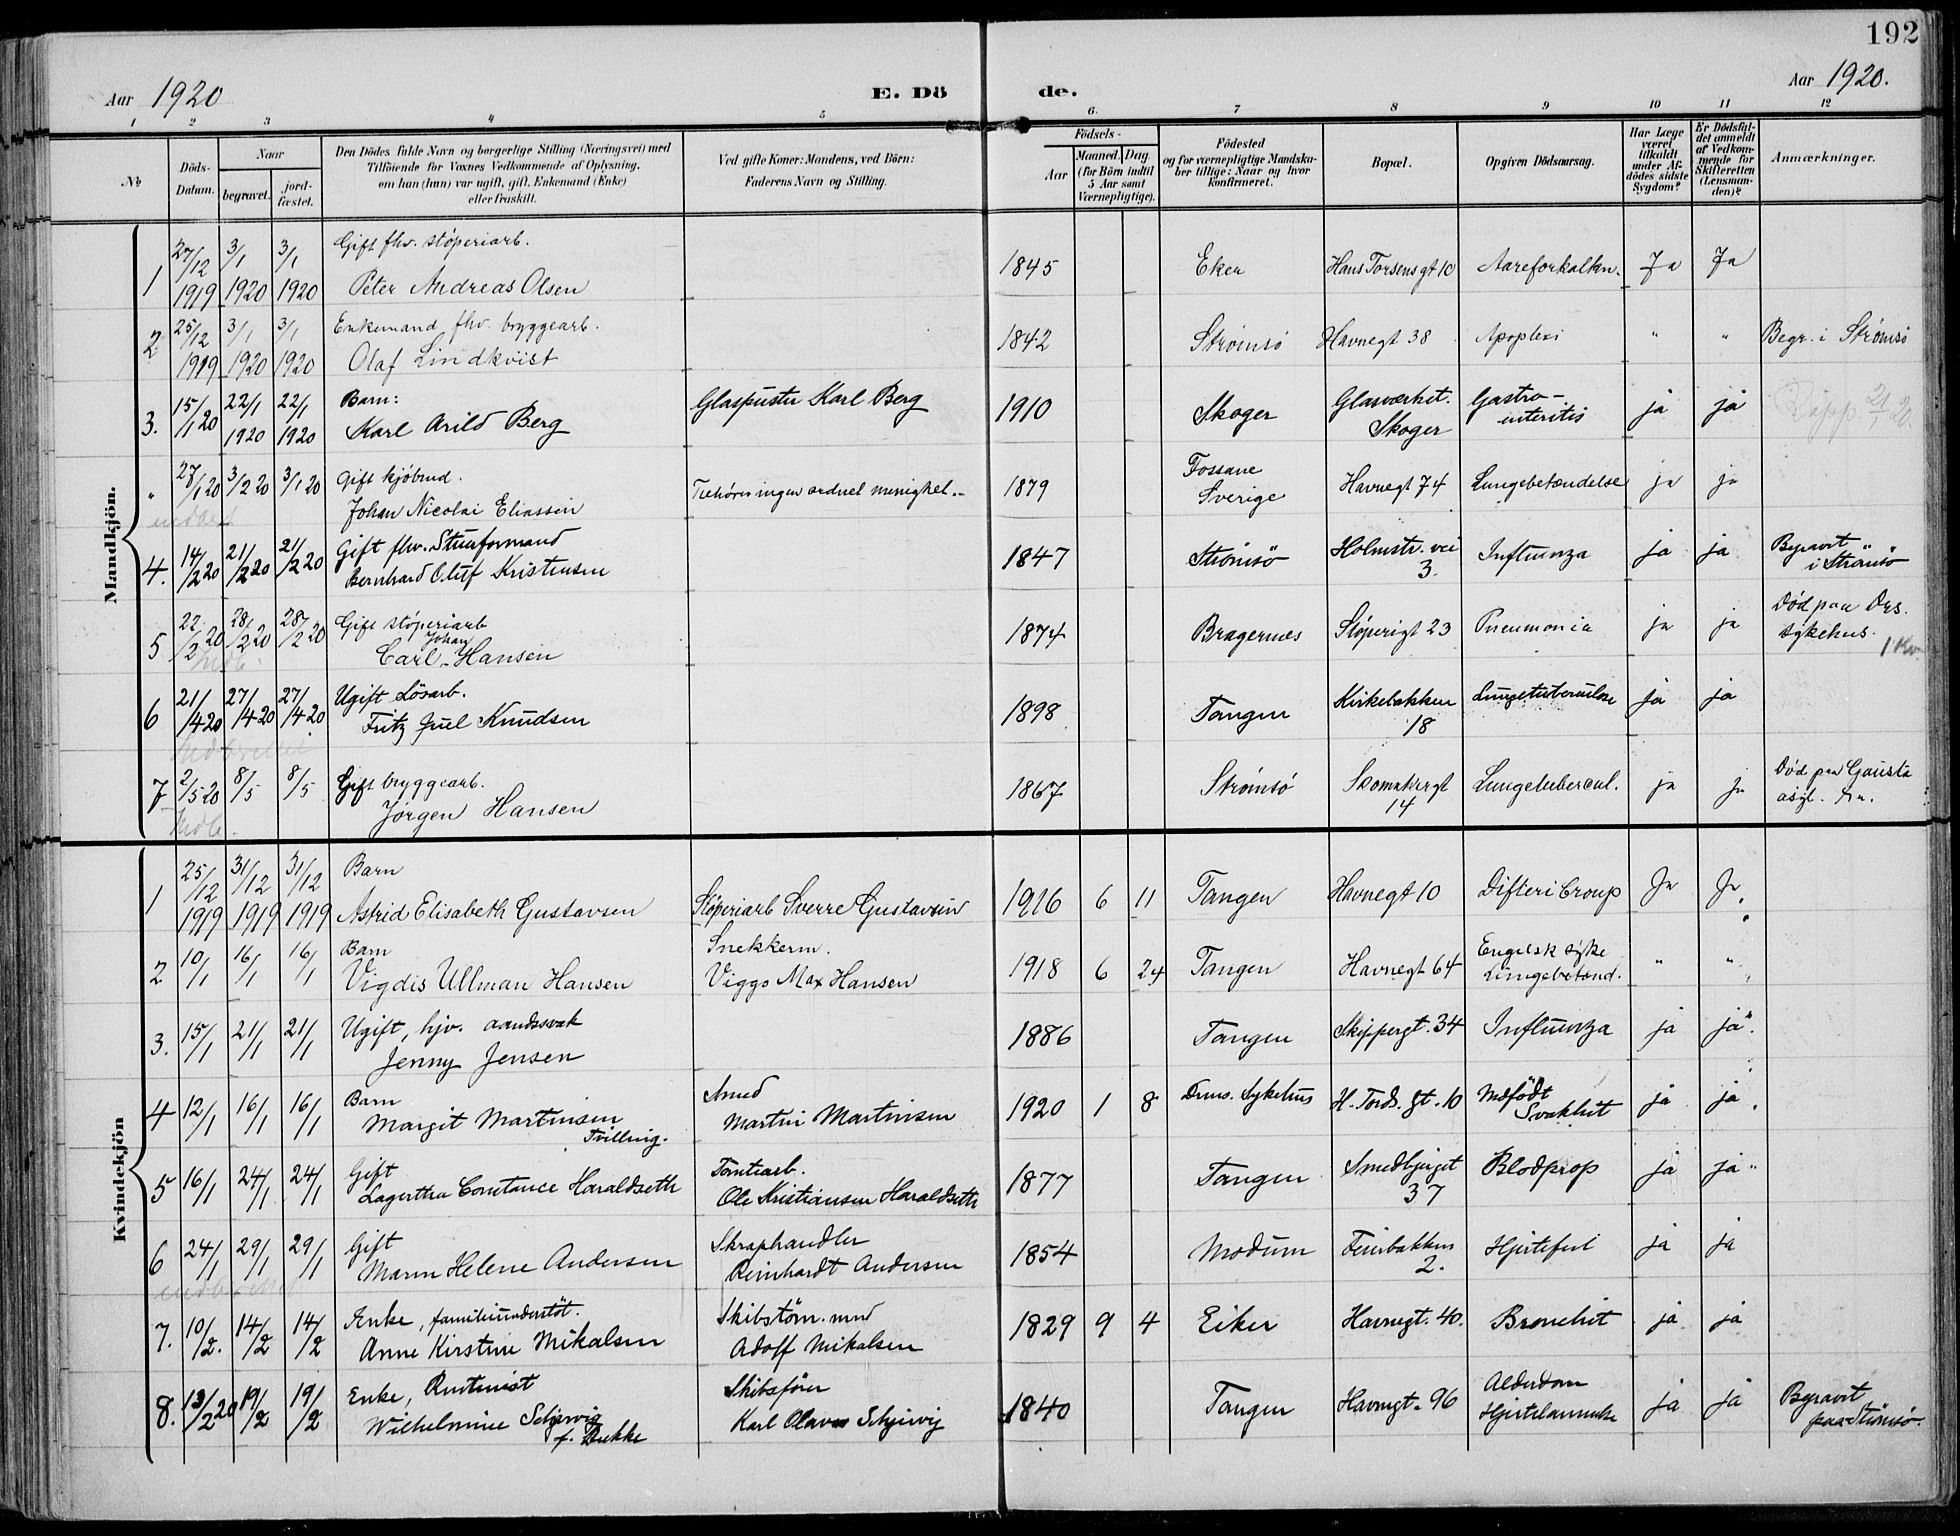 192
Aar 1920
E. Dö de.
Aar 1920.
1 2 3 4 5 6. 7 8 9 10 11 12
No
Döds-Datum.
Naar
begravet.
jord-fæstet.
Den Dödes fulde Navn og borgerlige Stilling (Næringsvei) med
Tilföiende for Voxnes Vedkommende af Oplysning,
om han (hun) var ugift, gift, Enkemand (Enke)
eller fraskilt.
Ved gifte Koner: Mandens, ved Börn:
Faderens Navn og Stilling.
Födsels-
Aar
Maaned. Dag
(for Börn indtil
5 Aar samt
Værnepligtige).
Födested
og for værnepligtige Mandska-
ber tillige: Naar og hvor
konfirmeret.
Bopæl.
Opgiven Dödsaarsag.
Har Læge
været
tilkaldt
under Af-
dödes sidste
Sygdom?
Er Dödsfal-
det anmeldt
af Vedkom-
mende for
Skifteretten
(Lensman-
den)?
Anmærkninger.
Mandkjön.
1 27/12 1919 3/1 1920 3/1 1920 Gift fhv. stöperiarb.
Peter Andreas Olsen 1845 Eker Hans Torsensgt 10 Aareforkalkn. Ja Ja
2 25/12 1919 3/1 1920 3/1 1920 Enkemand fhv. bryggearb.
Olaf Lindkvist 1842 Strömsö Havnegt 38 Apoplexi " " Begr. i Strömsö
3. 15/1 20 22/1 1920 22/1 1920 Barn:
Karl Arild Berg Glaspuster Karl Berg 1910 Skoger Glasværket. Skoger Gastro-interitis ja ja 21/1 20.
" 27/1 20 3/2 20 3/1 20 Gift kjöbmd.
Johan Nicolai Eliassen Tilhører ingen ordnet menighet.- 1879 Fossane Sverige Havnegt 74 Lungebetændelse ja ja
4. 14/2 20 21/2 20 21/2 20 Gift fhv. Stuerformand
Bernhard Oluf Kristensen 1847 Strömsö Holmstr. vei 3. Influenza ja ja Begravet i Strömsö
5 22/2 20 28/2 20 28/2 20 Gift stöperiarb
Carl Johan Hansen 1874 Bragernes Stöperigt 23 Pneumonia ja ja Död paa Drs. sykehus.
6 21/4 20 27/4 20 27/4 20 Ugift Lösarb.
Fritz Juel Knudsen 1898 Tangen Kirkebakken 18 Lungetuberculose ja ja
7 2/5 20 8/5 8/5 Gift bryggearb.
Jörgen Hansen 1867 Strömsö Skomakergt 14 Lungetubercul. ja ja Död paa Gausta asyl.
Kvindekjön
1 25/12 1919 31/12 1919 31/12 1919 Barn
Astrid Elisabeth Gustavsen Stöperiarb Sverre Gustavsen 1916 6 11 Tangen Havnegt 10 Difteri Croup Ja Ja
2 10/1 16/1 16/1 Barn
Vigdis Ullman Hansen Snekkerm. Viggo Max Hansen 1918 6 24 Tangen Havnegt 64 Engelsk syke Lungebetænd. " "
3. 15/1 21/1 21/1 Ugift, hjv. aandssvak
Jenny Jensen 1886 Tangen Skippergt. 34 Influenza ja ja
4 12/1 16/1 16/1 Barn
Margit Martinsen Tvilling. Smed Martin Martinsen 1920 1 8 Drms. Sykehus H. Tords. gt. 10 Medfödt Svakhet ja ja
5 16/1 24/1 24/1 Gift
Lagertha Constance Haraldseth Tomtearb. Ole Kristiansen Haraldseth 1877 Tangen Smedbjerget 37 Blodprop ja ja
6 24/1 29/1 29/1 Gift
Maren Helene Andersen Skraphandler Reinhardt Andersen 1854 Modum Feierbakken 2. Hjertefeil ja ja
7. 10/2. 14/2 14/2 Enke, familieunderstöt.
Anne Kirstine Mikalsen Skibstöm. md Adolf Mikalsen 1829 9 4 Eiker Havnegt. 40. Bronchit ja ja
8. 13/2 20 19/2 19/2 Enke, Rentenist
Wilhelmine Schjervig f. Bukke Skibsförer Karl Olaves Schjervig 1840 Tangen Havnegt. 96 Alderdom Hjertelammelse ja ja Begravet paa Strömsö.